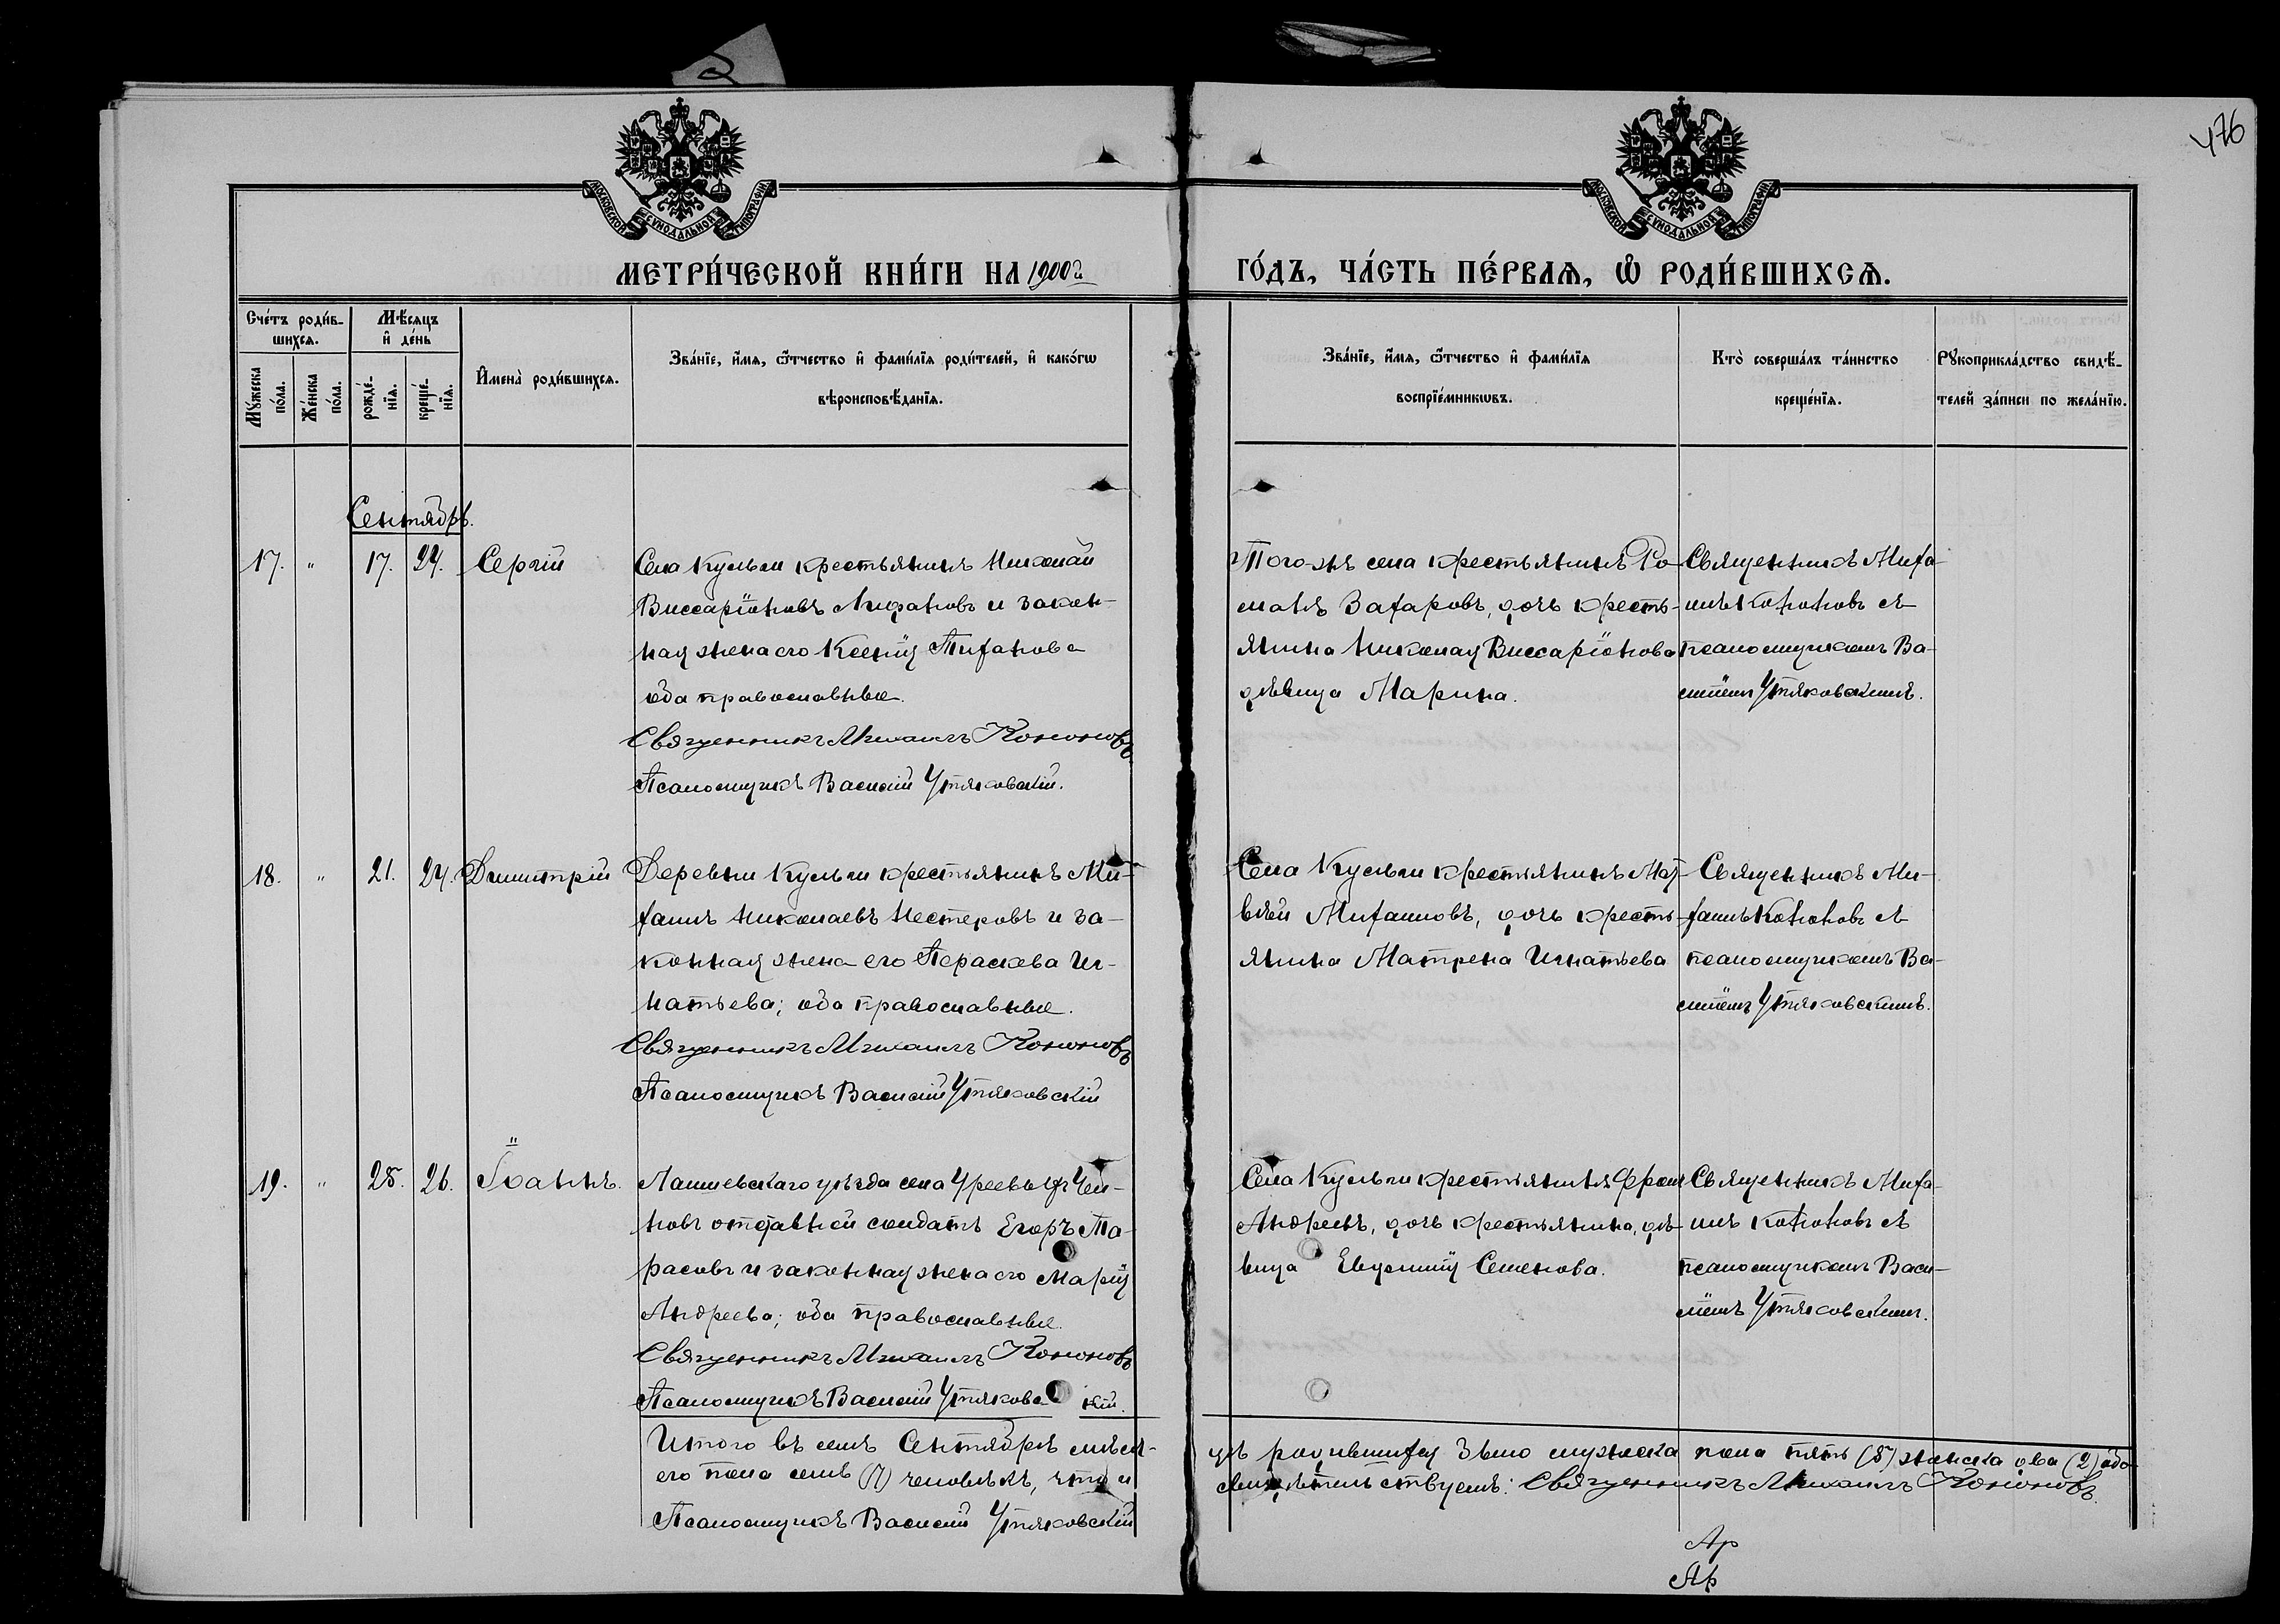 476
МОСКОВСКОЙ СѴНОДАЛЬНОЙ ТИПОГРАФІИ
МОСКОВСКОЙ СѴНОДАЛЬНОЙ ТИПОГРАФІИ
МЕТРИ́ЧЕСКОЙ КНИ́ГИ НА 1900й
ГО́ДЪ, ЧА́СТЬ ПЕ́РВАѦ, Ѡ РОДИ́ВШИХСѦ.
Сче́тъ роди́в-
шихсѧ.
Мѣ́сѧцъ
и҆ де́нь
Мꙋ́жеска
по́ла.
Же́нска
по́ла.
рожде́-
нїѧ.
креще́-
нїѧ.
И҆мена̀ роди́вшихсѧ.
Зва́нїе, и҆́мѧ, ѻ҆́тчество и҆ фами́лїѧ роди́телей, и҆ како́гѡ
вѣроисповѣ́данїѧ.
Зва́нїе, и҆́мѧ, ѻ҆́тчество и҆ фами́лїѧ
воспрїе́мникѡвъ.
Кто̀ соверша́лъ та́инство
креще́нїѧ.
Рꙋкоприкла́дство свидѣ́-
телей за́писи по жела́нїю.
Сентябрь.
17. " 17. 24. Сергій
Села Кульги крестьянинъ Николай
Виссаріоновъ Лифановъ и закон-
ная жена его Ксенія Тифанова
оба православные.
Священникъ Михаилъ Кононовъ
Псаломщикъ Василій Утяковскій.
Того-жъ села крестьянинъ Ро-
манъ Захаровъ, дочь кресть-
янина Николая Виссаріонова
дѣвица Марина.
Священникъ Миха-
илъ Кононовъ съ
псаломщикомъ Ва-
силіемъ Утяковскимъ.
18. " 21. 24. Димитрій
Деревни Кульги крестьянинъ Ми-
хаилъ Николаевъ Нестеровъ и за-
конная жена его Параскева Иг-
натьева; оба православные.
Священникъ Михаилъ Кононовъ
Псаломщикъ Василій Утяковскій
Села Кульги крестьянинъ Мат-
вѣй Михаиловъ, дочь кресть-
янина Матрена Игнатьева
Священникъ Ми-
хаилъ Кононовъ съ
псаломщикомъ Ва-
силіемъ Утяковскимъ.
19. " 25. 26. Іоаннъ.
Лаишевскаго уѣзда села
отставной солдатъ Егоръ Та-
расовъ и законная жена его Марія
Андреева; оба православные.
Священникъ Михаилъ Кононовъ
Псаломщикъ Василій Утяковскій.
Села Кульги крестьянинъ
Андреевъ, дочь крестьянина, дѣ-
вица Евдокія Семенова.
Священникъ Миха-
илъ Кононовъ съ
псаломщикомъ Васи-
ліемъ Утяковскимъ.
Итого въ семъ Сентябрѣ мѣся-
цѣ родившихся было мужеска пола пять (5) женска два (2) обо-
его пола семь (7) человѣкъ, что и
свидѣтельствуемъ: Священникъ Михаилъ Кононовъ.
Псаломщикъ Василій Утяковскій